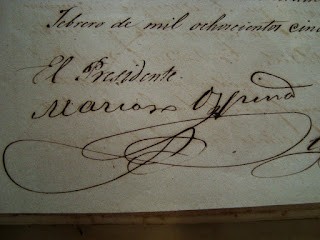 Febrero de mil ochocientos cinc
El Presidente
Mariano Ospina